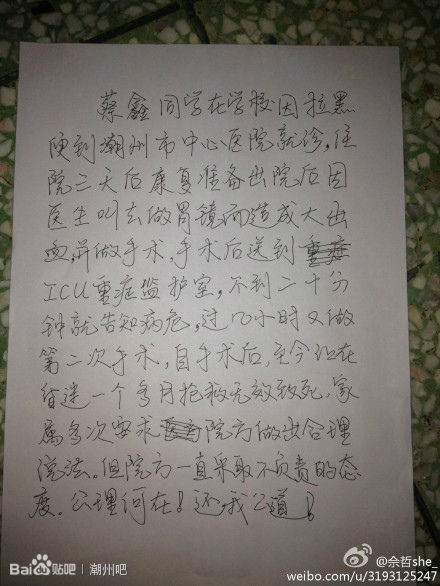 蔡鑫同学在学校因拉黑
便到潮州市中心医院就诊,住
院三天后康复准备出院后因
医生叫去做胃镜而造成大出
血,并做手术,手术后送到
ICU重症监护室,不到二十分
钟就告知病危,过几小时又做
第二次手术,自手术后,至今
昏迷一个多月抢救无效致死,家
属多次要求院方做出合理
说法。但院方一直采取不负责的态
度。公理何在!还我公道!
Bai贴吧 | 潮州吧
@佘哲she_
weibo.com/u/3193125247